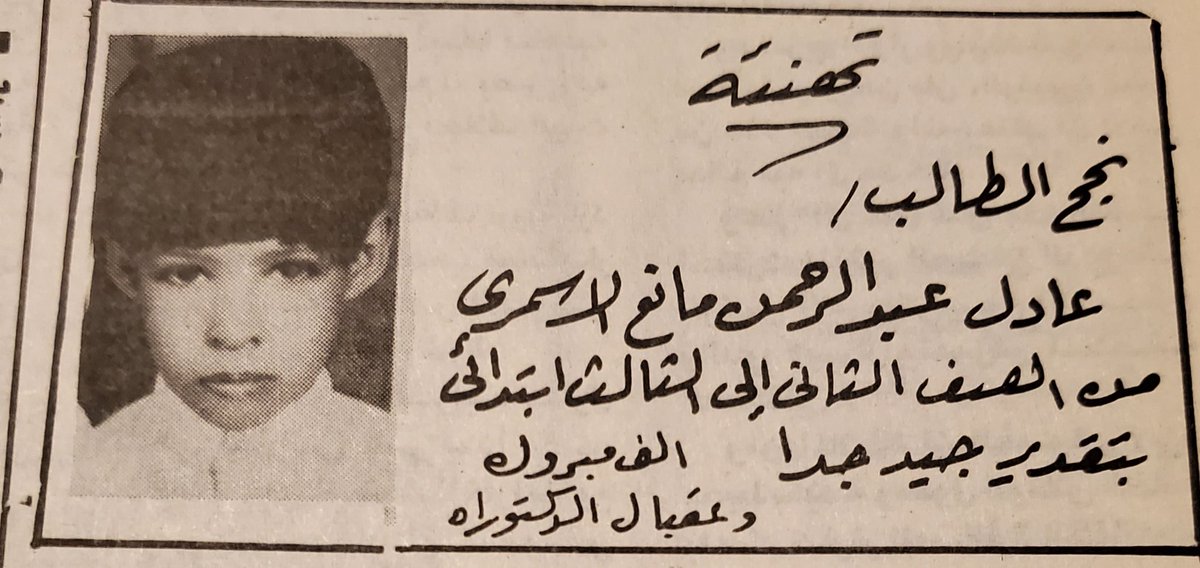 تهنئة
نجح الطالب /
عادل عبدالرحمن مانع الاسمري
من الصف الثاني إلى الثالث ابتدائي
بتقدير جيد جدا الف مبروك
وعقبال الدكتوراه